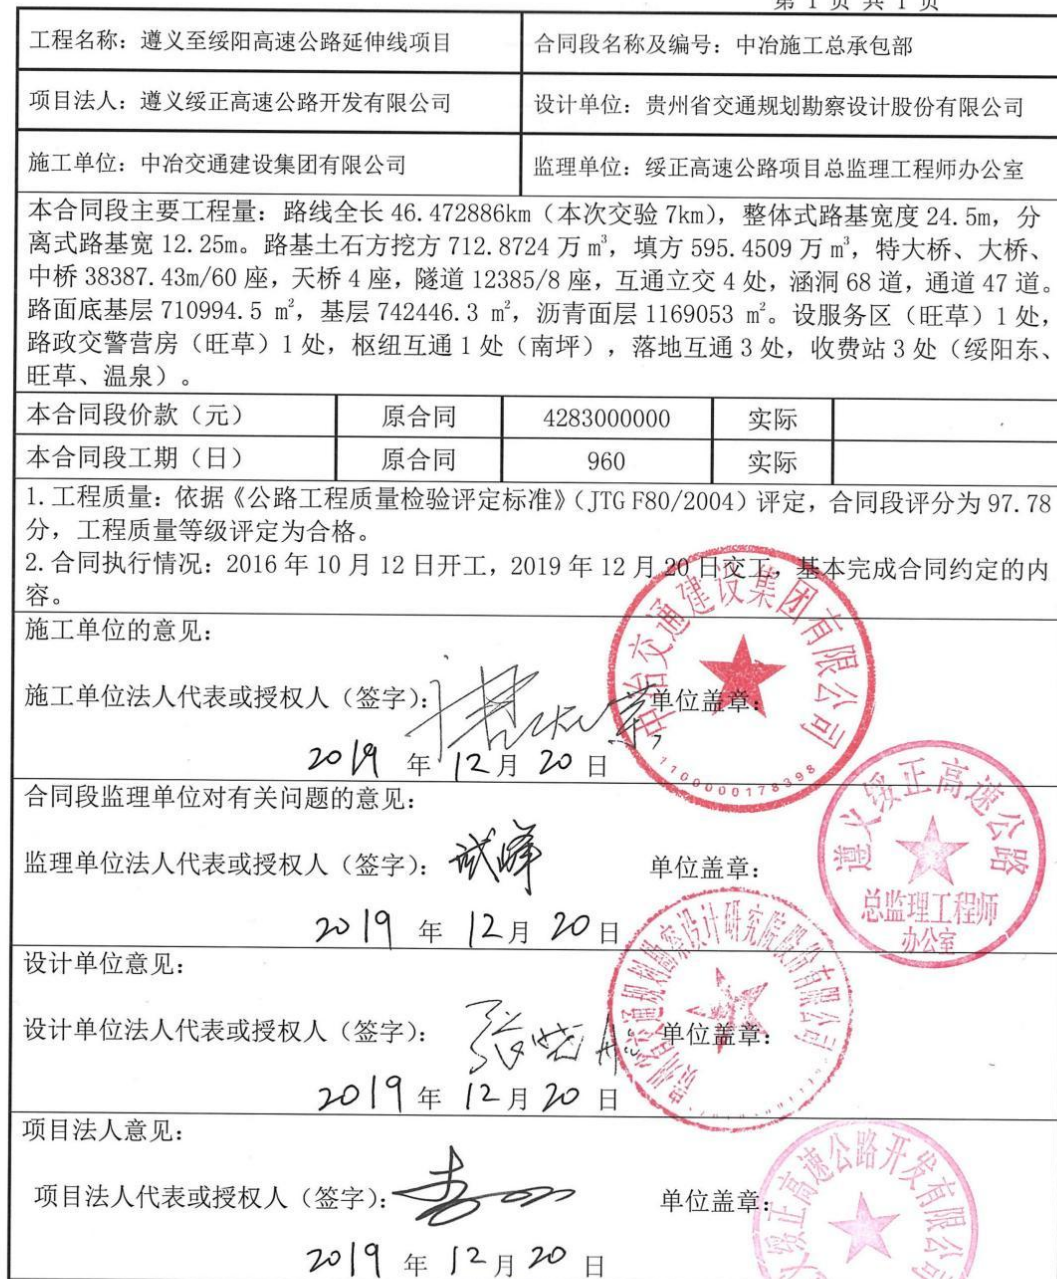 第 1 页 共 1 页
工程名称：遵义至绥阳高速公路延伸线项目 合同段名称及编号：中冶施工总承包部
项目法人：遵义绥正高速公路开发有限公司 设计单位：贵州省交通规划勘察设计股份有限公司
施工单位：中冶交通建设集团有限公司 监理单位：绥正高速公路项目总监理工程师办公室
本合同段主要工程量：路线全长 46.472886km（本次交验 7km），整体式路基宽度 24.5m，分
离式路基宽 12.25m。路基土石方挖方 712.8724 万 m³，填方 595.4509 万 m³，特大桥、大桥、
中桥 38387.43m/60 座，天桥 4 座，隧道 12385/8 座，互通立交 4 处，涵洞 68 道，通道 47 道。
路面底基层 710994.5 m²，基层 742446.3 m²，沥青面层 1169053 m²。设服务区（旺草）1 处，
路政交警营房（旺草）1 处，枢纽互通 1 处（南坪），落地互通 3 处，收费站 3 处（绥阳东、
旺草、温泉）。
本合同段价款（元） 原合同 4283000000 实际
本合同段工期（日） 原合同 960 实际
1.工程质量：依据《公路工程质量检验评定标准》（JTG F80/2004）评定，合同段评分为 97.78
分，工程质量等级评定为合格。
2.合同执行情况：2016 年 10 月 12 日开工，2019 年 12 月 20 日交工，基本完成合同约定的内
容。
施工单位的意见：
施工单位法人代表或授权人（签字）： 单位盖章：
中冶交通建设集团有限公司
1100000178398
2019 年 12 月 20 日
合同段监理单位对有关问题的意见：
监理单位法人代表或授权人（签字）： 单位盖章：
遵义绥正高速公路
总监理工程师
办公室
2019 年 12 月 20 日
设计单位意见：
设计单位法人代表或授权人（签字）： 单位盖章：
贵州省交通规划勘察设计研究院股份有限公司
2019 年 12 月 20 日
项目法人意见：
项目法人代表或授权人（签字）： 单位盖章：
义绥正高速公路开发有限公
2019 年 12 月 20 日